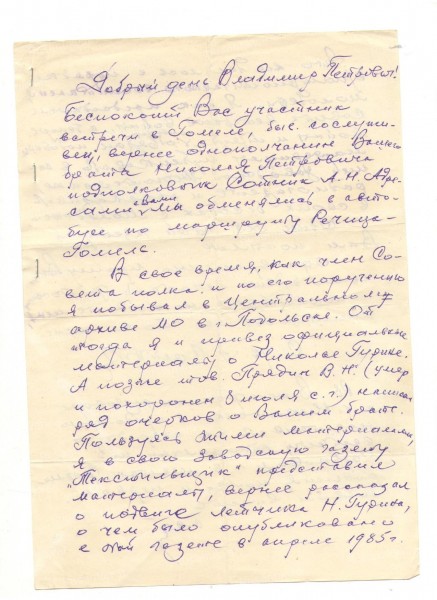 Добрый день Владимир Петрович!
Беспокоит Вас участник
встречи в Гомеле, быв. сослужи-
вец, вернее однополчанин Вашего
брата Николая Петровича
подполковник Сотник А.Н. Адре-
сами с Вами мы обменялись в авто-
бусе по маршруту Речица-
Гомель.
В свое время, как член Со-
вета полка и по его поручению
я побывал в Центральном
архиве МО в г. Подольске. От-
туда я и привез официальные
материалы о Николае Гурине.
А позже тов. Прядин В.Н. (умер
и похоронен 3 июля с.г.) написал
ряд очерков о Вашем брате.
Пользуясь этими материалами,
я в свою заводскую газету
"Текстильщик" представил
материалы, вернее рассказал
о подвиге летчика Н. Гурина,
о чем было опубликовано
в этой газете в апреле 1985 г.